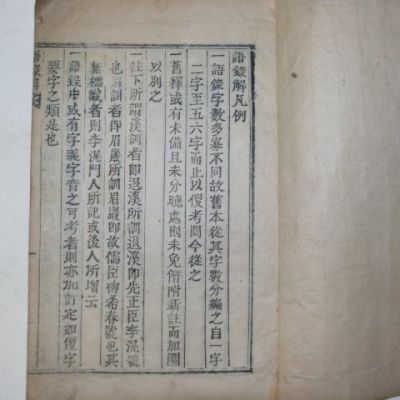 語錄解凡例
一語錄字數多寡不同故舊本從其字數分編之自一字
二字至五六字而止以便考閱今從之
一舊釋或有未備且未分曉處則未免僭附新註而加圈
以別之
一註下所謂溪訓者即退溪所訓退溪即先正臣李滉號
也眉訓者即眉巖所訓眉巖即故儒臣柳希春號也其
無標識者則李滉門人所記或後人所增云
一語錄中或有字義字音之可考者則亦加訂定如便字
要字之類是也
語錄解